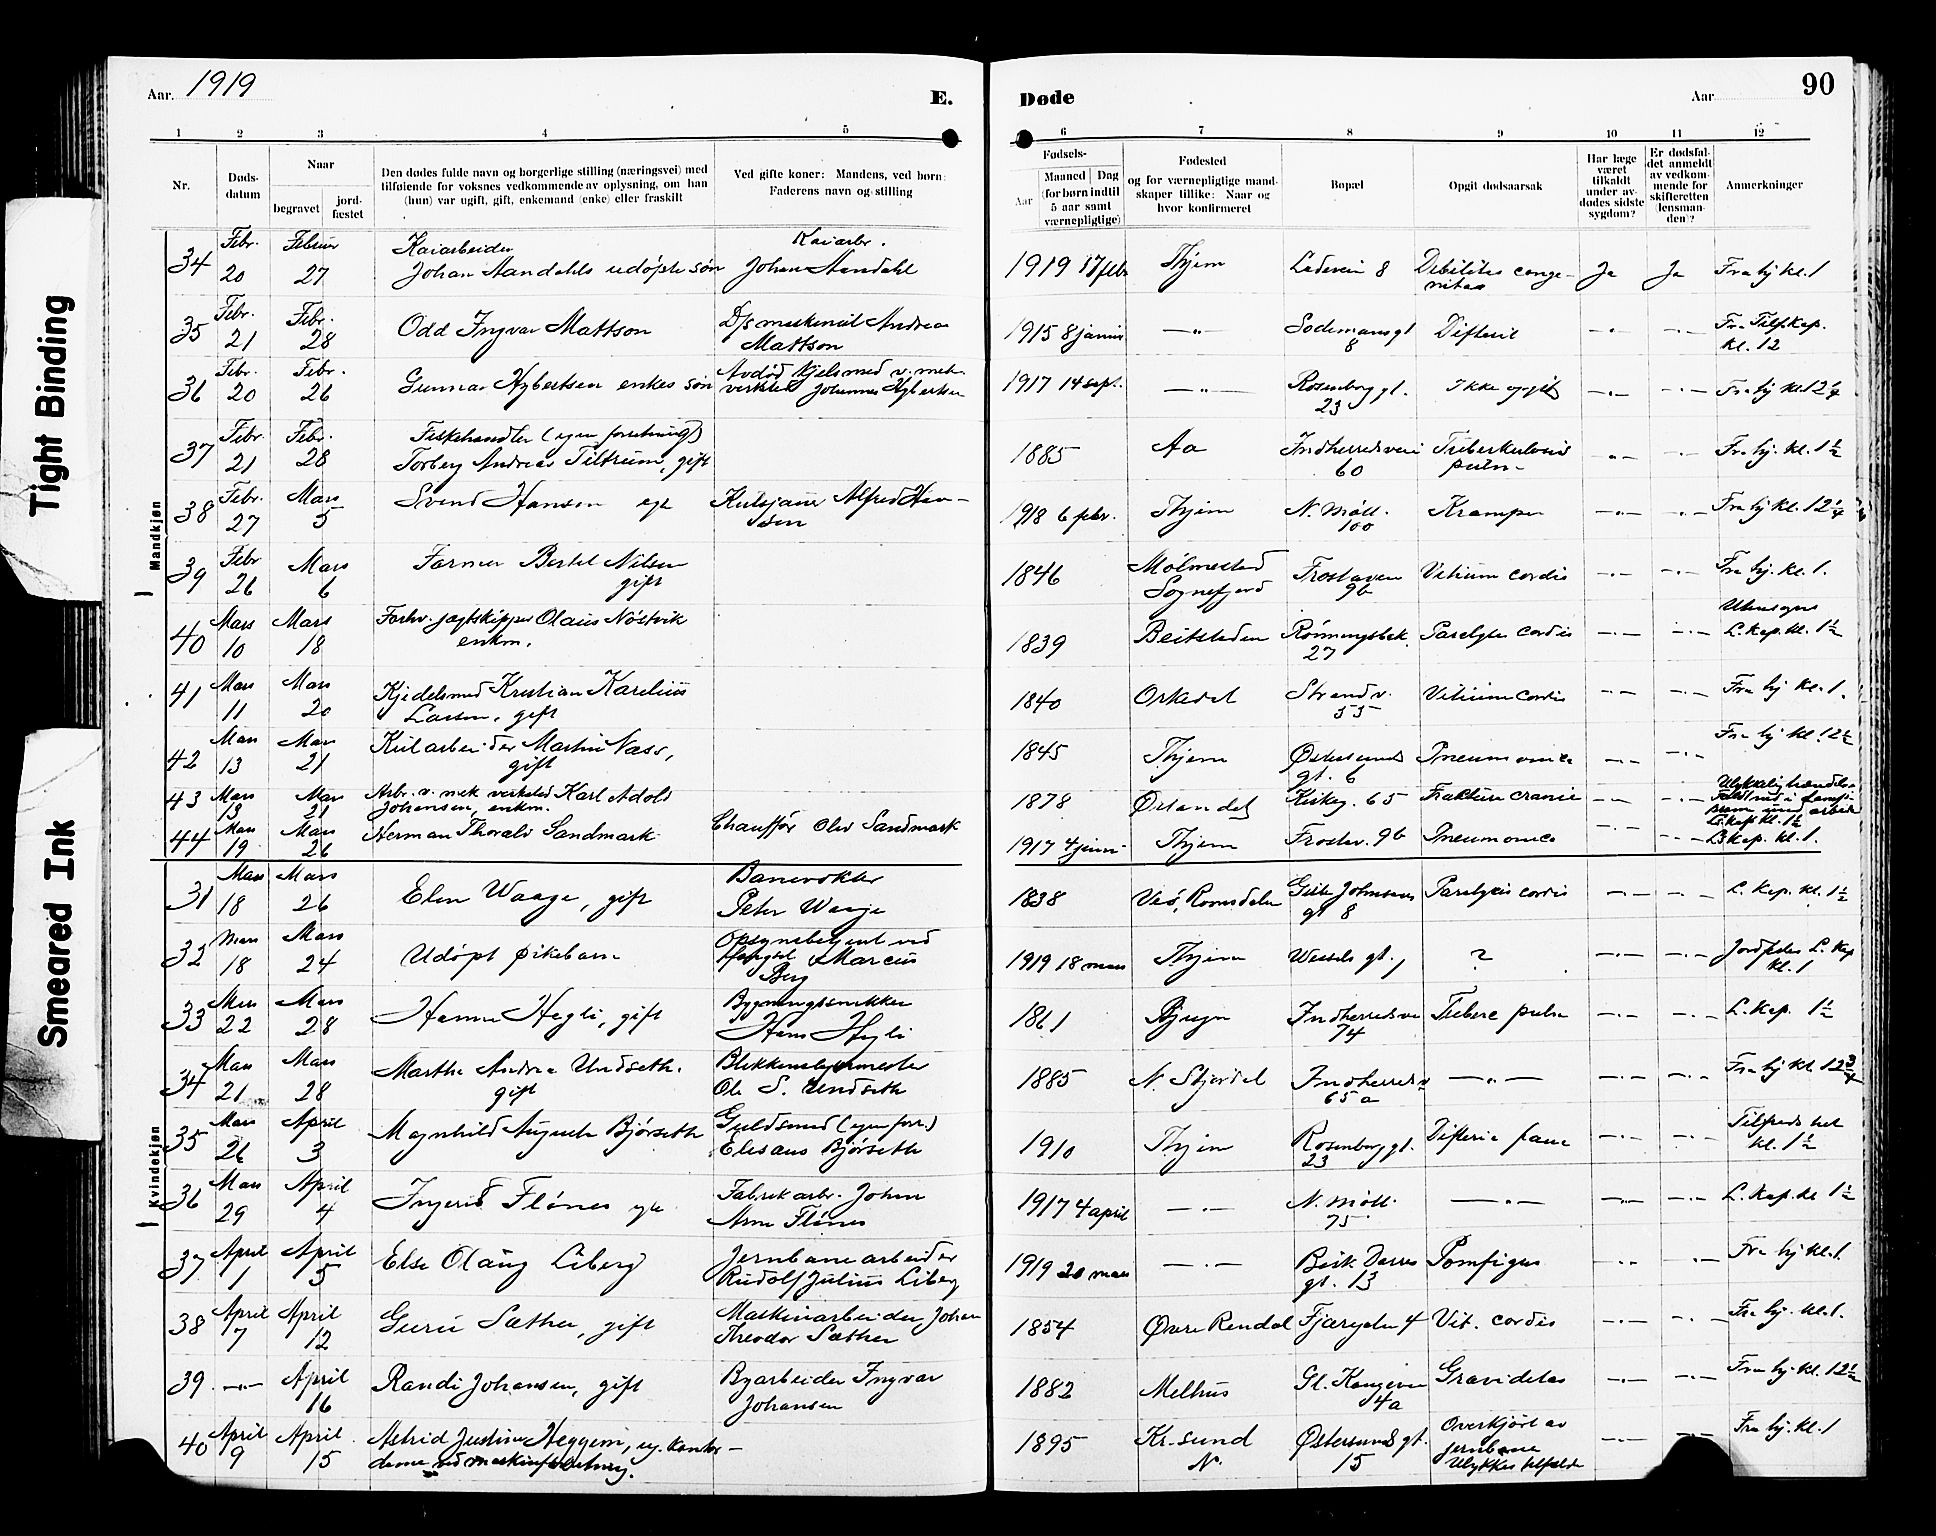 Tight Binding
Smeared Ink
Aar. 1919
E.
Døde
Aar
90
1 2 3 4 5 6 7 8 9 10 11 12
Nr.
Døds-
datum
Naar
begravet
jord-
fæstet
Den dødes fulde navn og borgerlige stilling (næringsvei) med
tilføiende for voksnes vedkommende av oplysning, om han
(hun) var ugift, gift, enkemand (enke) eller fraskilt
Ved gifte koner: Mandens, ved børn:
Faderens navn og stilling
Fødsels-
Aar
Maaned | Dag
(for børn indtil
5 aar samt
værnepligtige)
Fødested
og for værnepligtige mand-
skaper tillike: Naar og
hvor konfirmeret
Bopæl
Opgit dødsaarsak
Har læge
været
tilkaldt
under av-
dødes sidste
sygdom?
Er dødsfal-
det anmeldt
av vedkom-
mende for
skifteretten
(lensman-
den)?
Anmerkninger
Mandkjøn
34 Febr. 20 Februar 27 Kaiarbeider Johan Aandahls udøpte søn Kaiarbr. Johan Aandahl 1919 17 febr Thjem Ladevein 8 Debilitas congenitas Ja Ja Fra hj kl. 1
35 Febr. 21 Febr. 28 Odd Ingvar Mattson D/s maskinist Andreas Mattson 1915 8 januar —"— Sodemansgt 8 Difterit —"— —"— Fra Tilf.kap. kl. 12
36 Febr. 20 Febr. 26 Gunnar Hybertsen enkes søn Avdød kjelsmed v. mek. verksted Johannes Hybertsen 1917 14 sept. —"— Rosenborg gt. 23 Ikke opgit —"— —"— Fra hj kl. 12
37 Febr. 21 Febr. 28 Fiskehandler (egen forretning) Torberg Andreas Tiltrum, gift 1885 Aa Indherredsvei 60 Tuberkulosis pulm. —"— —"— Fra hj. kl. 1½
38 Febr. 27 Mars 5 Svend Hansen Kulsjauer Alfred Hansen 1918 6 febr. Thjem N. Møll. 100 Kramper —"— —"— Fra hj kl. 12¼
39 Febr 26 Mars 6 Farmer Bertel Nilsen gift 1846 Mølmested Sognefjord Frostaveien 9b Vitium cordis —"— —"— Fra hj. kl. 1.
40 Mars 10 Mars 18 Forhv. jagtskipper Olaus Nøstvik enkm. 1839 Beitstaden Rønningsbak. 27 Paralyse cordis —"— —"— L. kap. kl. 1½
41 Mars 11 Mars 20 Kjedelsmed Kristian Karelius Larsen, gift 1840 Orkedal Strandv. 55 Vitium cordis —"— —"— Fra hj kl. 1.
42 Mars 13 Mars 21 Kularbeider Martin Næss, gift 1845 Thjem Østersunds gt. 6 Pneumonia —"— —"— Fra hj kl. 12½
43 Mars 13 Mars 21 Arbr. v. mek verksted Karl Adolf Johansen, enkm. 1878 Ørlandet Kirkeg. 65 Fraktura cranie —"— —"— Ulykkelig hændelse. L. kap kl. 1½
44 Mars 19 Mars 26 Herman Thoralv Sandmark Chauffør Olav Sandmark 1917 4 juni Thjem Frostav. 9b Pneumonia —"— —"— L. kap. kl. 1.
Kvindekjøn
31 Mars 18 Mars 26 Elen Waage, gift Banevokter Peter Waage 1838 Veø, Romsdalen Gisle Johnsons gt 8 Paralysis cordis —"— —"— L. kap. kl. 1½
32 Mars 18 Mars 24 Udøpt pikebarn Opsynsbetjent ved Marcus Berg 1919 18 mars Thjem Wessels gt. 1 ? —"— —"— Jordfæstes L. kap kl. 1
33 Mars 22 Mars 28 Hanna Hegli, gift Bygningssnikker Hans Hegli 1861 Bjugn Indherredsvei 74 Tuberc pulm —"— —"— L. kap. 1½
34 Mars 21 Mars 28 Marthe Andrea Undseth. gift Blikkenslagermester Ole S. Undseth 1885 N. Stjørdal Indherredsv 65a —"— —"— —"— Fra hj kl. 12¾
35 Mars 26 April 3 Magnhild Augusta Bjørseth Guldsmed (egen forr.) Elesæus Bjørseth 1910 Thjem Rosenborg gt. 23 Difterie —"— —"— Tilfreds het kl. 1½
36 Mars 29 April 4 Ingerid Flønes Fabrikarbr. Johan Arne Flønes 1917 4 april —"— N. Møll. 75 —"— —"— —"— L. kap. kl 1½
37 April 1 April 5 Else Olaug Liberg Jernbanearbeider Rudolf Julius Liberg 1919 20 mars —"— Bisk Darres gt. 13 Pemfigus —"— —"— Fra hj kl. 1.
38 April 7 April 12 Guru Sæther, gift Maskinarbeider Johan Theodor Sæther 1854 Øvre Rendal Fjæregaten 4 Vit. cordis —"— —"— Fra hj. kl. 1.
39. —"— April 16 Randi Johansen, gift Byarbeider Ingvar Johansen 1882 Melhus Gl. Kongevei 4a Graviditas —"— —"— Fra hj. kl. 12½
40 April 9 April 15 Astrid Justine Heggem, ug. kontordame ved maskinforretning. 1895 Kr.sund N. Østersunds gt. 15 Overkjørt av jernbane Ulykkes tilfælde —"— Fra hj. kl. 1